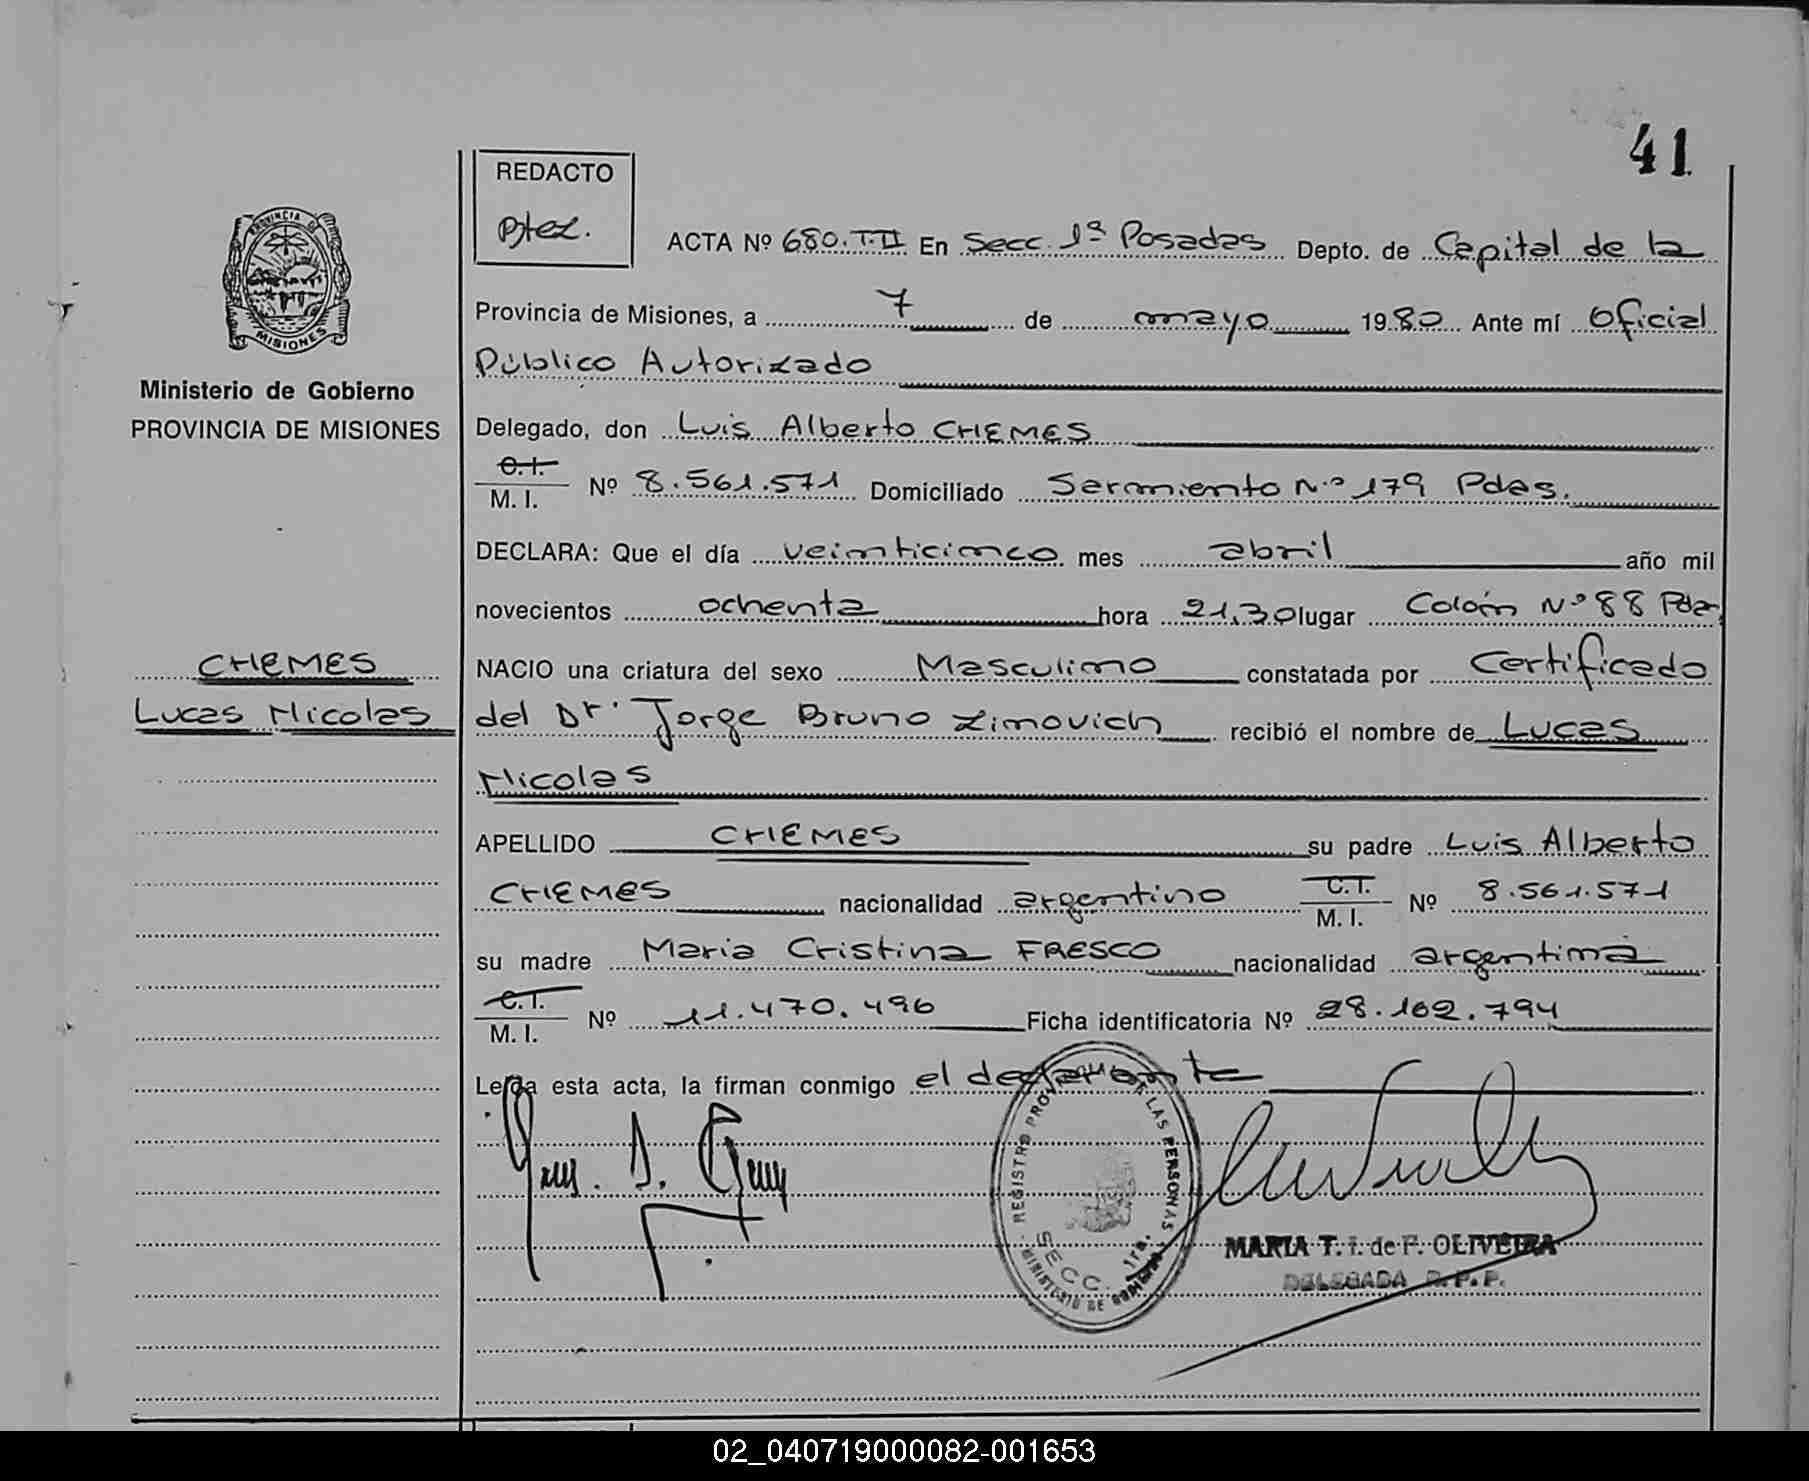 41
REDACTO
PROVINCIA DE
MISIONES
Ministerio de Gobierno
PROVINCIA DE MISIONES
CHEMES
Lucas Nicolas
ACTA Nº 680.T.II En Secc. 1ª Posadas Depto. de Capital de la
Provincia de Misiones, a 7 de mayo 1980 Ante mí Oficial
Público Autorizado
Delegado, don Luis Alberto CHEMES
C.I.
M. I. Nº 8.561.571 Domiciliado Sarmiento Nº 179 Pdas.
DECLARA: Que el día veinticinco mes abril año mil
novecientos ochenta hora 21,30 lugar Colón Nº 88 Pdas
NACIO una criatura del sexo Masculino constatada por Certificado
del Dr. Jorge Bruno Zimovich recibió el nombre de Lucas
Nicolas
APELLIDO CHEMES su padre Luis Alberto
CHEMES nacionalidad argentino C.I. M. I. Nº 8.561.571
su madre Maria Cristina FRESCO nacionalidad argentina
C.I.
M. I. Nº 11.470.496 Ficha identificatoria Nº 28.102.794
Leída esta acta, la firman conmigo el declarante
REGISTRO PROVINCIAL DE LAS PERSONAS
SECC. 1ra.
MINISTERIO DE GOBIERNO
MARIA T. I. de F. OLIVEIRA
DELEGADA R. P. P.
02_040719000082-001653